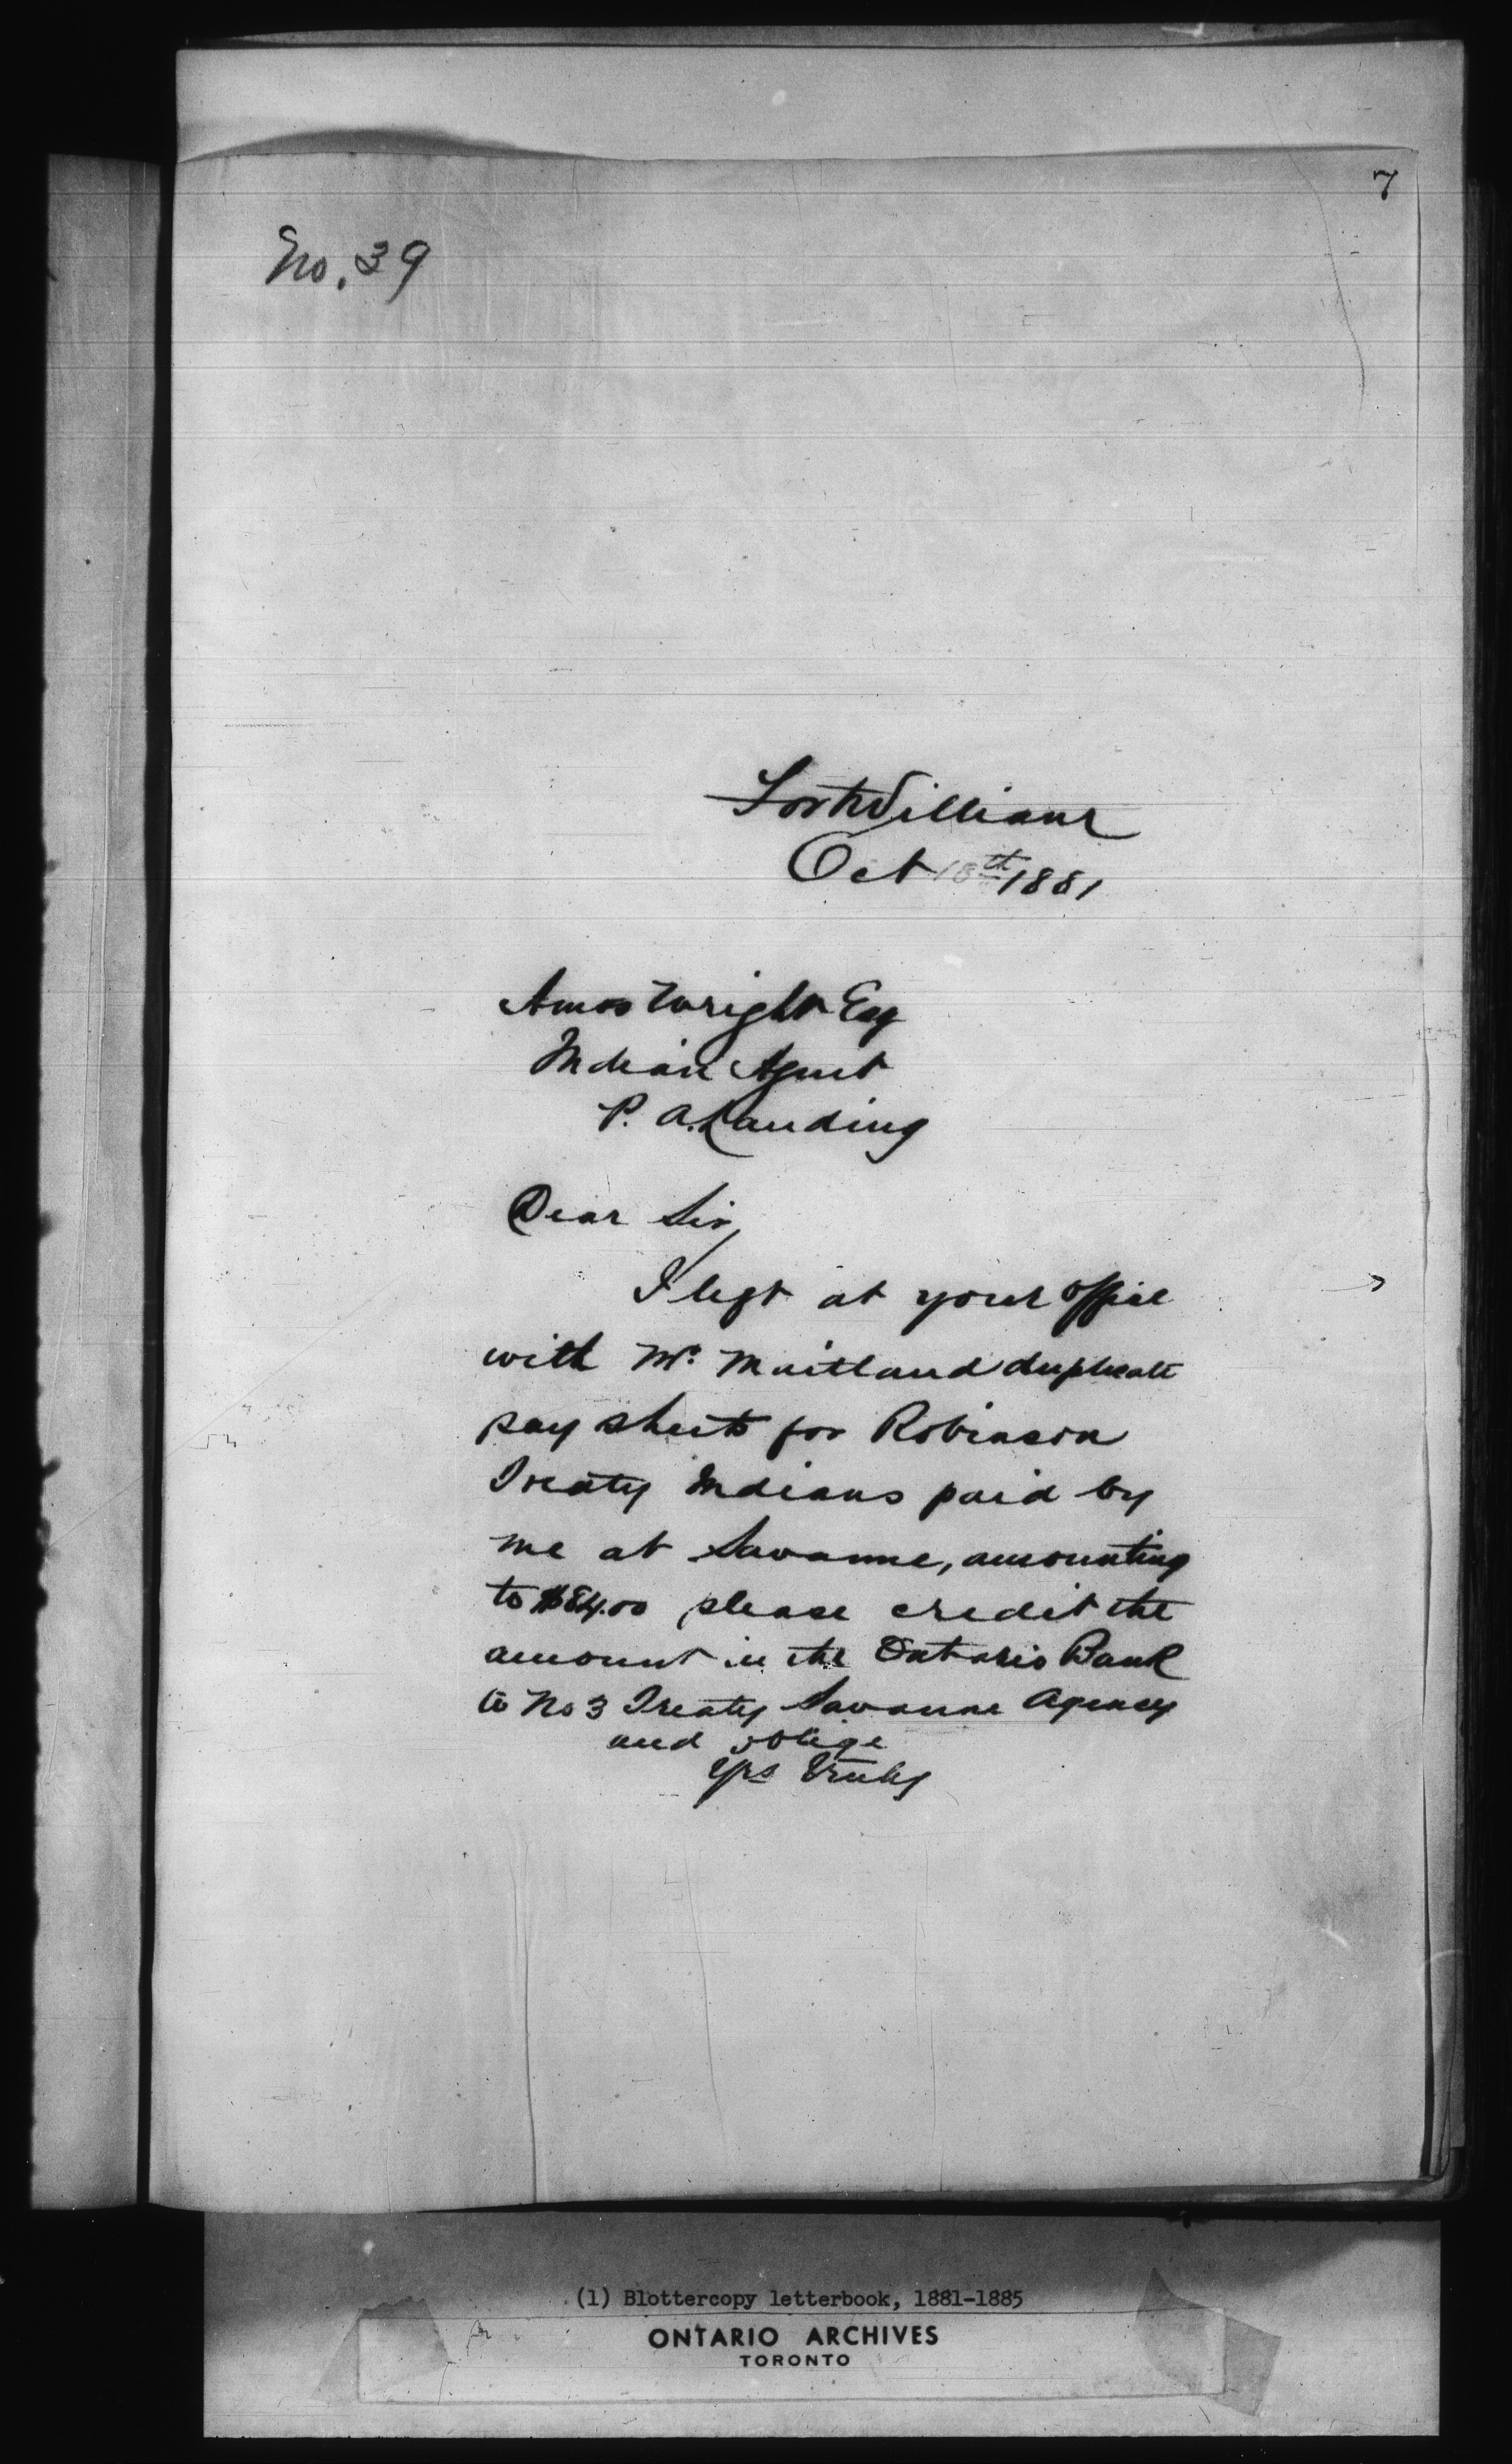 7
No. 39
Fort William
Oct 18th 1881
Amos Wright Esq
Indian Agent
P. A. Landing
Dear Sir,
I left at your office
with Mr. Maitland duplicate
pay sheets for Robinson
Treaty Indians paid by
me at Savanne, amounting
to $84.00 please credit the
amount in the Ontario Bank
to No 3 Treaty Savanne Agency
and oblige
Yrs Truly
(1) Blottercopy letterbook, 1881-1885
ONTARIO ARCHIVES
TORONTO